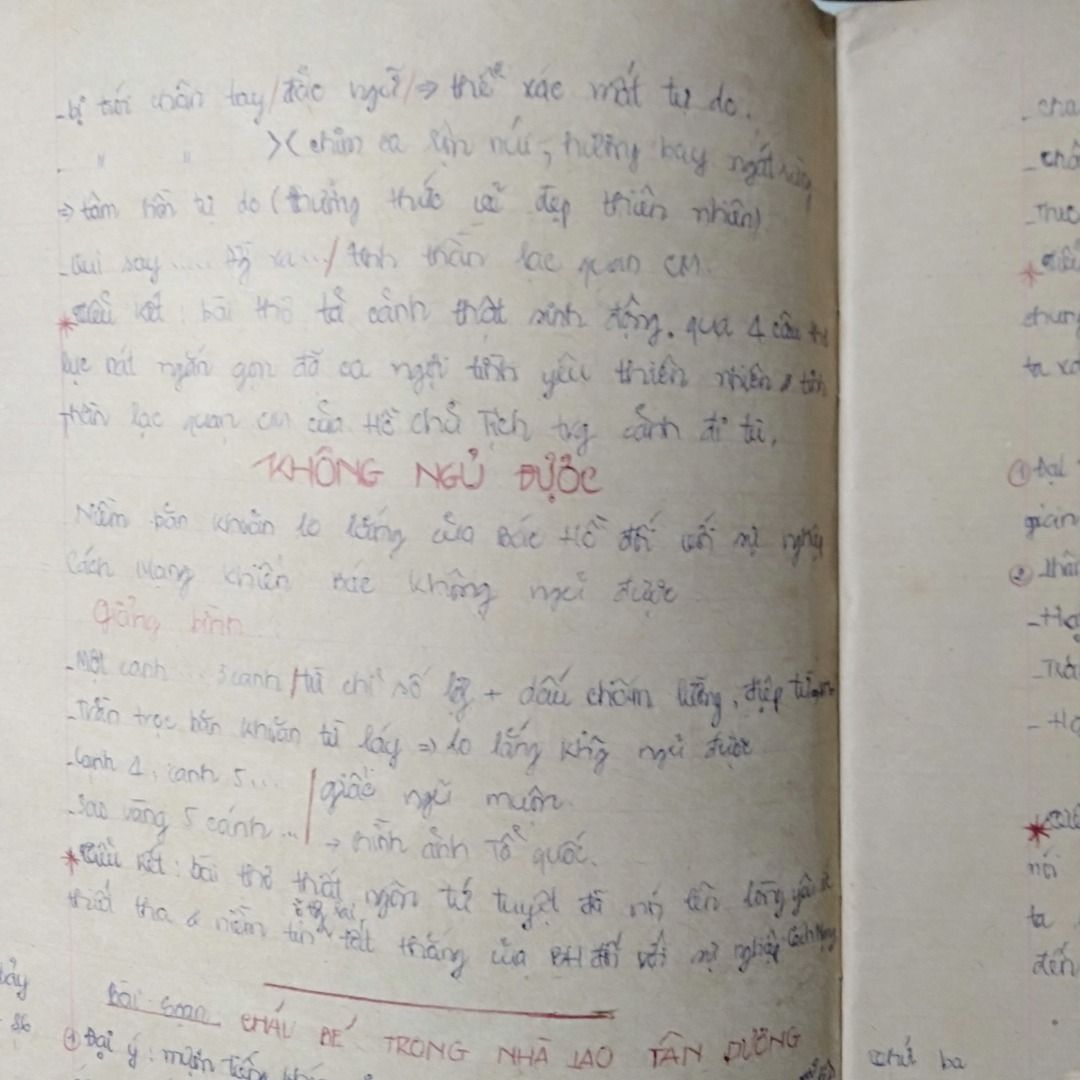 - bị trói chân tay / đặc ngữ / => thể xác mất tự do.
" " >< chim ca rộn núi, hương bay ngát rừng
=> tâm hồn tự do (thưởng thức vẻ đẹp thiên nhiên)
- Vui say .... ... / tinh thần lạc quan CM.
* Tiểu kết : bài thơ tả cảnh thật sinh động. qua 4 câu thơ
lục bát ngắn gọn đã ca ngợi tình yêu thiên nhiên & tinh
thần lạc quan CM của Hồ Chủ Tịch trg cảnh đi tù.
KHÔNG NGỦ ĐƯỢC
Niềm băn khoăn lo lắng của Bác Hồ đối với sự nghiệp
Cách Mạng khiến Bác không ngủ được
Giảng bình
- Một canh ... 3 canh / từ chỉ số lg + dấu chấm lửng, điệp từ
- Trằn trọc băn khoăn từ láy => lo lắng khg ngủ được
- Canh 4, canh 5 ... / giấc ngủ muộn.
- Sao vàng 5 cánh ... / → hình ảnh Tổ quốc.
* Tiểu kết : bài thơ thất ngôn tứ tuyệt đã nói lên lòng yêu
thiết tha & niềm tin tất thắng của BH đối với sự nghiệp Cách Mạng
Bài soạn CHÁU BÉ TRONG NHÀ LAO TÂN DƯƠNG
① Đại ý : mượn tiếng
bẩy
- cha
- Thực
*
chung
ta
① Đại
gian
②
- Hạ
*
nói
ta
đến
chú ba